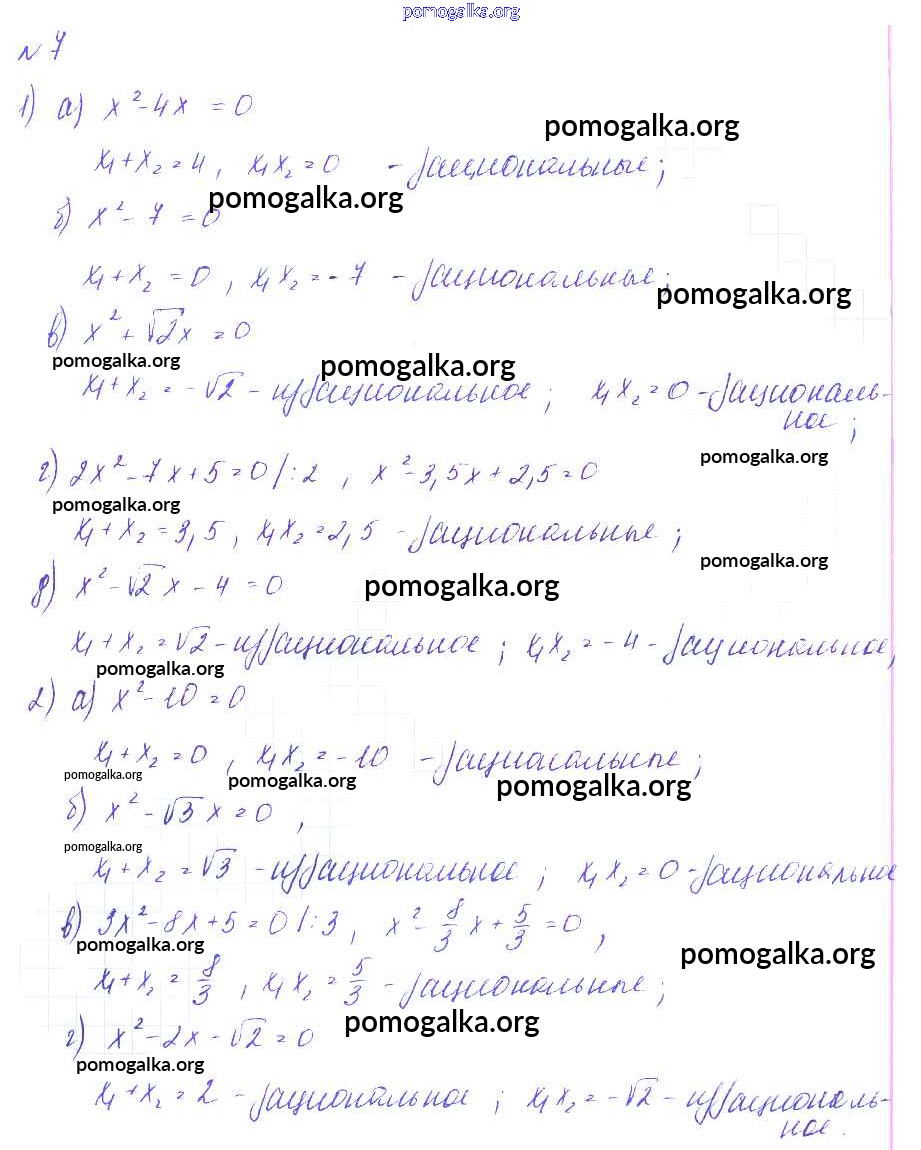 pomogalka.org
№ 7
1) а) x² - 4x = 0
pomogalka.org
x₁ + x₂ = 4, x₁x₂ = 0 - рациональные;
pomogalka.org
б) x² - 7 = 0
x₁ + x₂ = 0, x₁x₂ = -7 - рациональные;
pomogalka.org
в) x² + √2x = 0
pomogalka.org pomogalka.org
x₁ + x₂ = -√2 - иррациональное; x₁x₂ = 0 - рациональ-
ное;
pomogalka.org
г) 2x² - 7x + 5 = 0 /:2, x² - 3,5x + 2,5 = 0
pomogalka.org
x₁ + x₂ = 3,5, x₁x₂ = 2,5 - рациональные;
pomogalka.org
д) x² - √2 x - 4 = 0
pomogalka.org
x₁ + x₂ = √2 - иррациональное; x₁x₂ = -4 - рациональное;
pomogalka.org
2) а) x² - 10 = 0
x₁ + x₂ = 0, x₁x₂ = -10 - рациональные;
pomogalka.org pomogalka.org pomogalka.org
б) x² - √3 x = 0,
pomogalka.org
x₁ + x₂ = √3 - иррациональное; x₁x₂ = 0 - рациональное
в) 3x² - 8x + 5 = 0 /:3, x² - 8/3 x + 5/3 = 0,
pomogalka.org pomogalka.org
x₁ + x₂ = 8/3, x₁x₂ = 5/3 - рациональные;
pomogalka.org
г) x² - 2x - √2 = 0
pomogalka.org
x₁ + x₂ = 2 - рациональное; x₁x₂ = -√2 - иррациональ-
ное.